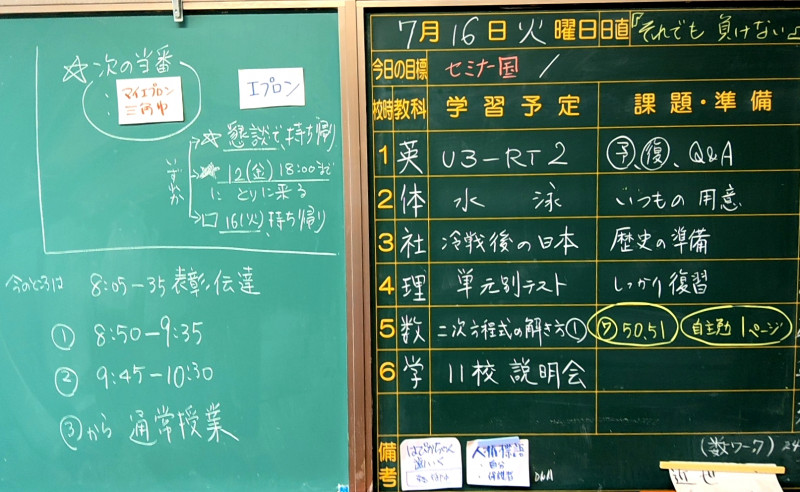 ☆次の当番
マイエプロン
三河中
エプロン
いずれか
☆懇談で持ち帰り
12(金) 18:00まで
にとりに来る
□16(火)持ち帰り
今のところは
8:05-35 表彰伝達
① 8:50-9:35
② 9:45-10:30
③から 通常授業
7月16日火曜日 日直『それでも 負けない』
今日の目標 セミナー国 /
校時 教科 学習予定 課題・準備
1 英 U3-RT2 予、復、Q&A
2 体 水泳 いつもの用意
3 社 冷戦後の日本 歴史の準備
4 理 単元別テスト しっかり復習
5 数 二次方程式の解き方① ワ 50,51 自主勉 1ページ
6 学 11校説明会
備考
人権標語
(数ワーク) 24